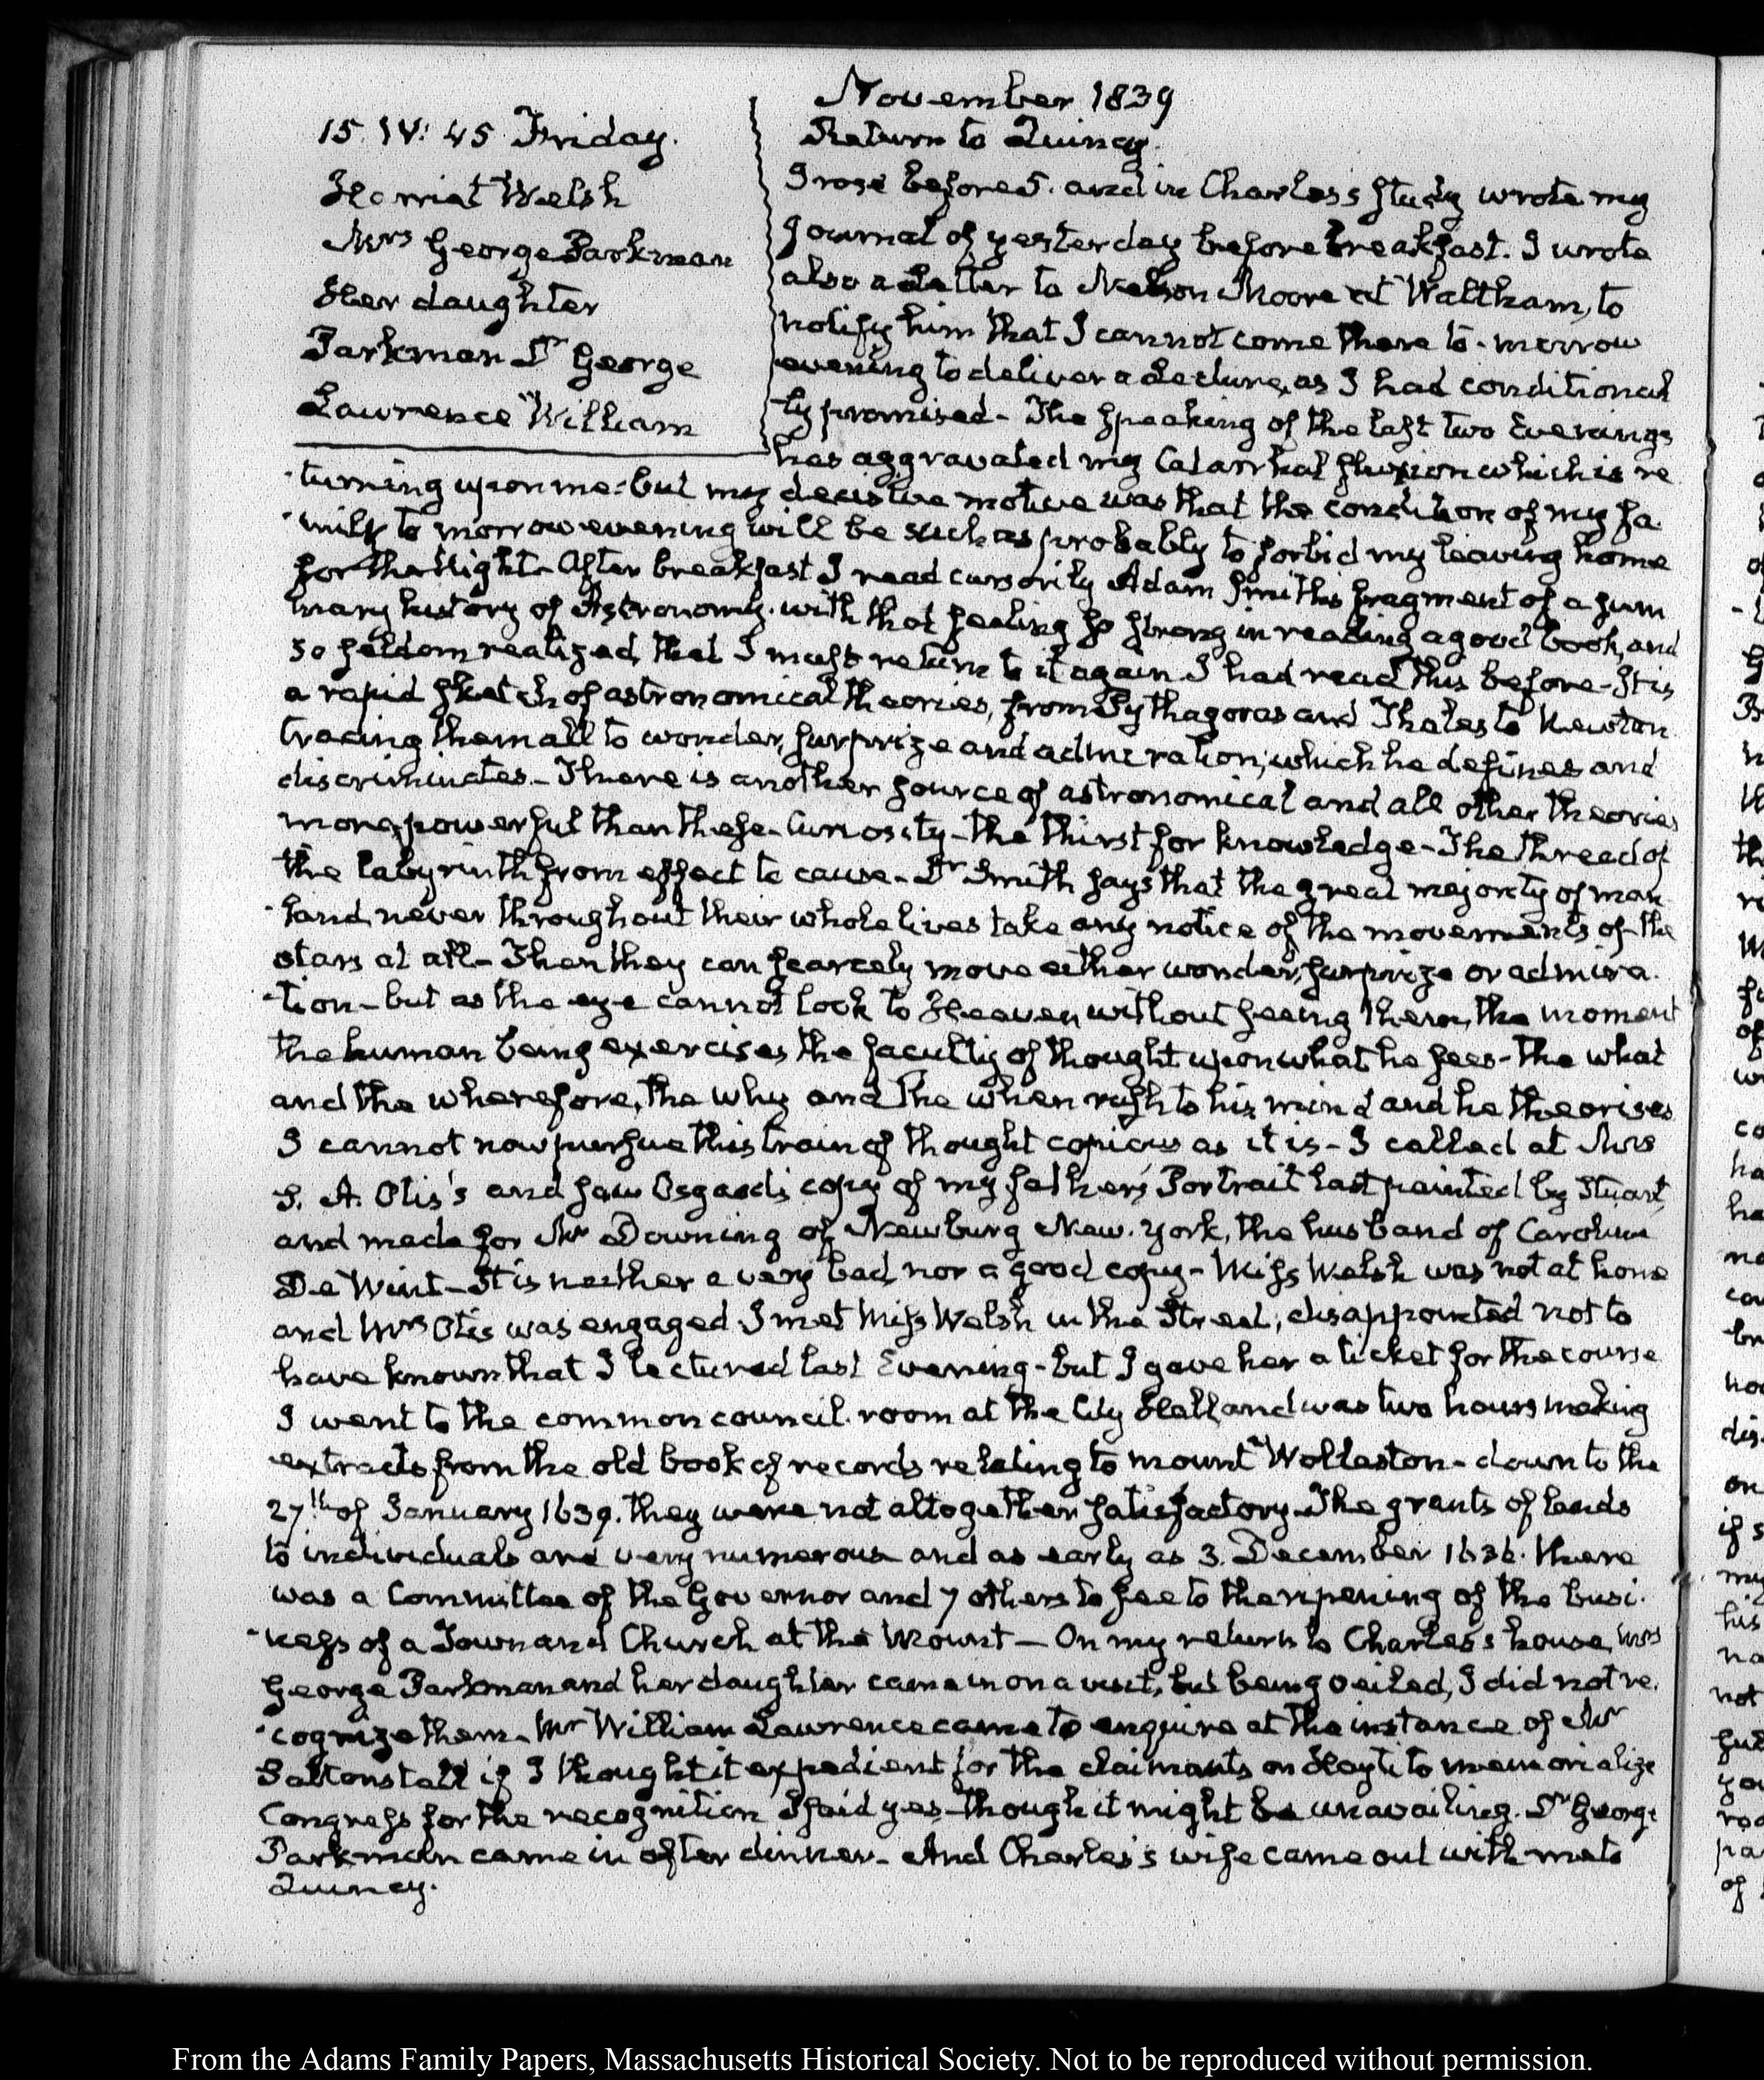 November 1839
15. IV: 45 Friday.
Return to Quincy.
Harriet Welsh
Mrs George Parkman
Her daughter
Parkman Dr George
Lawrence William
I rose before 5. and in Charles's Study wrote my
journal of yesterday before breakfast. I wrote
also a Letter to Nelson Moore at Waltham, to
notify him that I cannot come there to-morrow
evening to deliver a Lecture, as I had conditional
ly promised- The speaking of the last two Evenings
has aggravated my Catarrhal fluxion which is re
-turning upon me: but my decisive motive was that the condition of my fa
-mily to morrow evening will be such as probably to forbid my leaving home
for the Night- After breakfast I read cursorily Adam Smith's fragment of a sum
mary history of Astronomy. with that feeling so strong in reading a good book, and
so seldom realized, that I must return to it again. I had read this before- It is
a rapid sketch of astronomical theories, from Pythagoras and Thales to Newton
tracing them all to wonder, surprize and admiration; which he defines and
discriminates- There is another source of astronomical and all other theories
more powerful than these- Curiosity- the thirst for knowledge- The thread of
the labyrinth from effect to cause- Dr Smith says that the great majority of man
-kind never throughout their whole lives take any notice of the movements of the
stars at all- Then they can scarcely move either wonder, surprize or admira-
-tion- but as the eye cannot look to Heaven without seeing them, the moment
the human being exercises the faculty of thought upon what he sees- the what
and the wherefore, the why and the when rush to his mind and he theorises
I cannot now pursue this train of thought copious as it is- I called at Mrs
S. A. Otis's and saw Osgood's copy of my father's Portrait last painted by Stuart,
and made for Mr Downing of Newburg New-York, the husband of Caroline
De Wint- It is neither a very bad nor a good copy- Miss Welsh was not at home
and Mrs Otis was engaged I met Miss Welsh in the Street, disappointed not to
have known that I lectured last Evening- but I gave her a ticket for the course
I went to the common council-room at the City Hall, and was two hours making
extracts from the old book of records relating to mount Wollaston- down to the
27th of January 1639. they were not altogether satisfactory- The grants of lands
to individuals are very numerous and as early as 3. December 1636. there
was a Committee of the Governor and 7 others to see to the ripening of the busi-
-ness of a Town and Church at the Mount- On my return to Charles's house, Mrs
George Parkman and her daughter came in on a visit, but being veiled, I did not re-
-cognize them. Mr William Lawrence came to enquire at the instance of Mr
Saltonstall if I thought it expedient for the claimants on Hayti to memorialize
Congress for the recognition I said yes- though it might be unavailing. Dr George
Parkman came in after dinner- And Charles's wife came out with me to
Quincy.
From the Adams Family Papers, Massachusetts Historical Society. Not to be reproduced without permission.